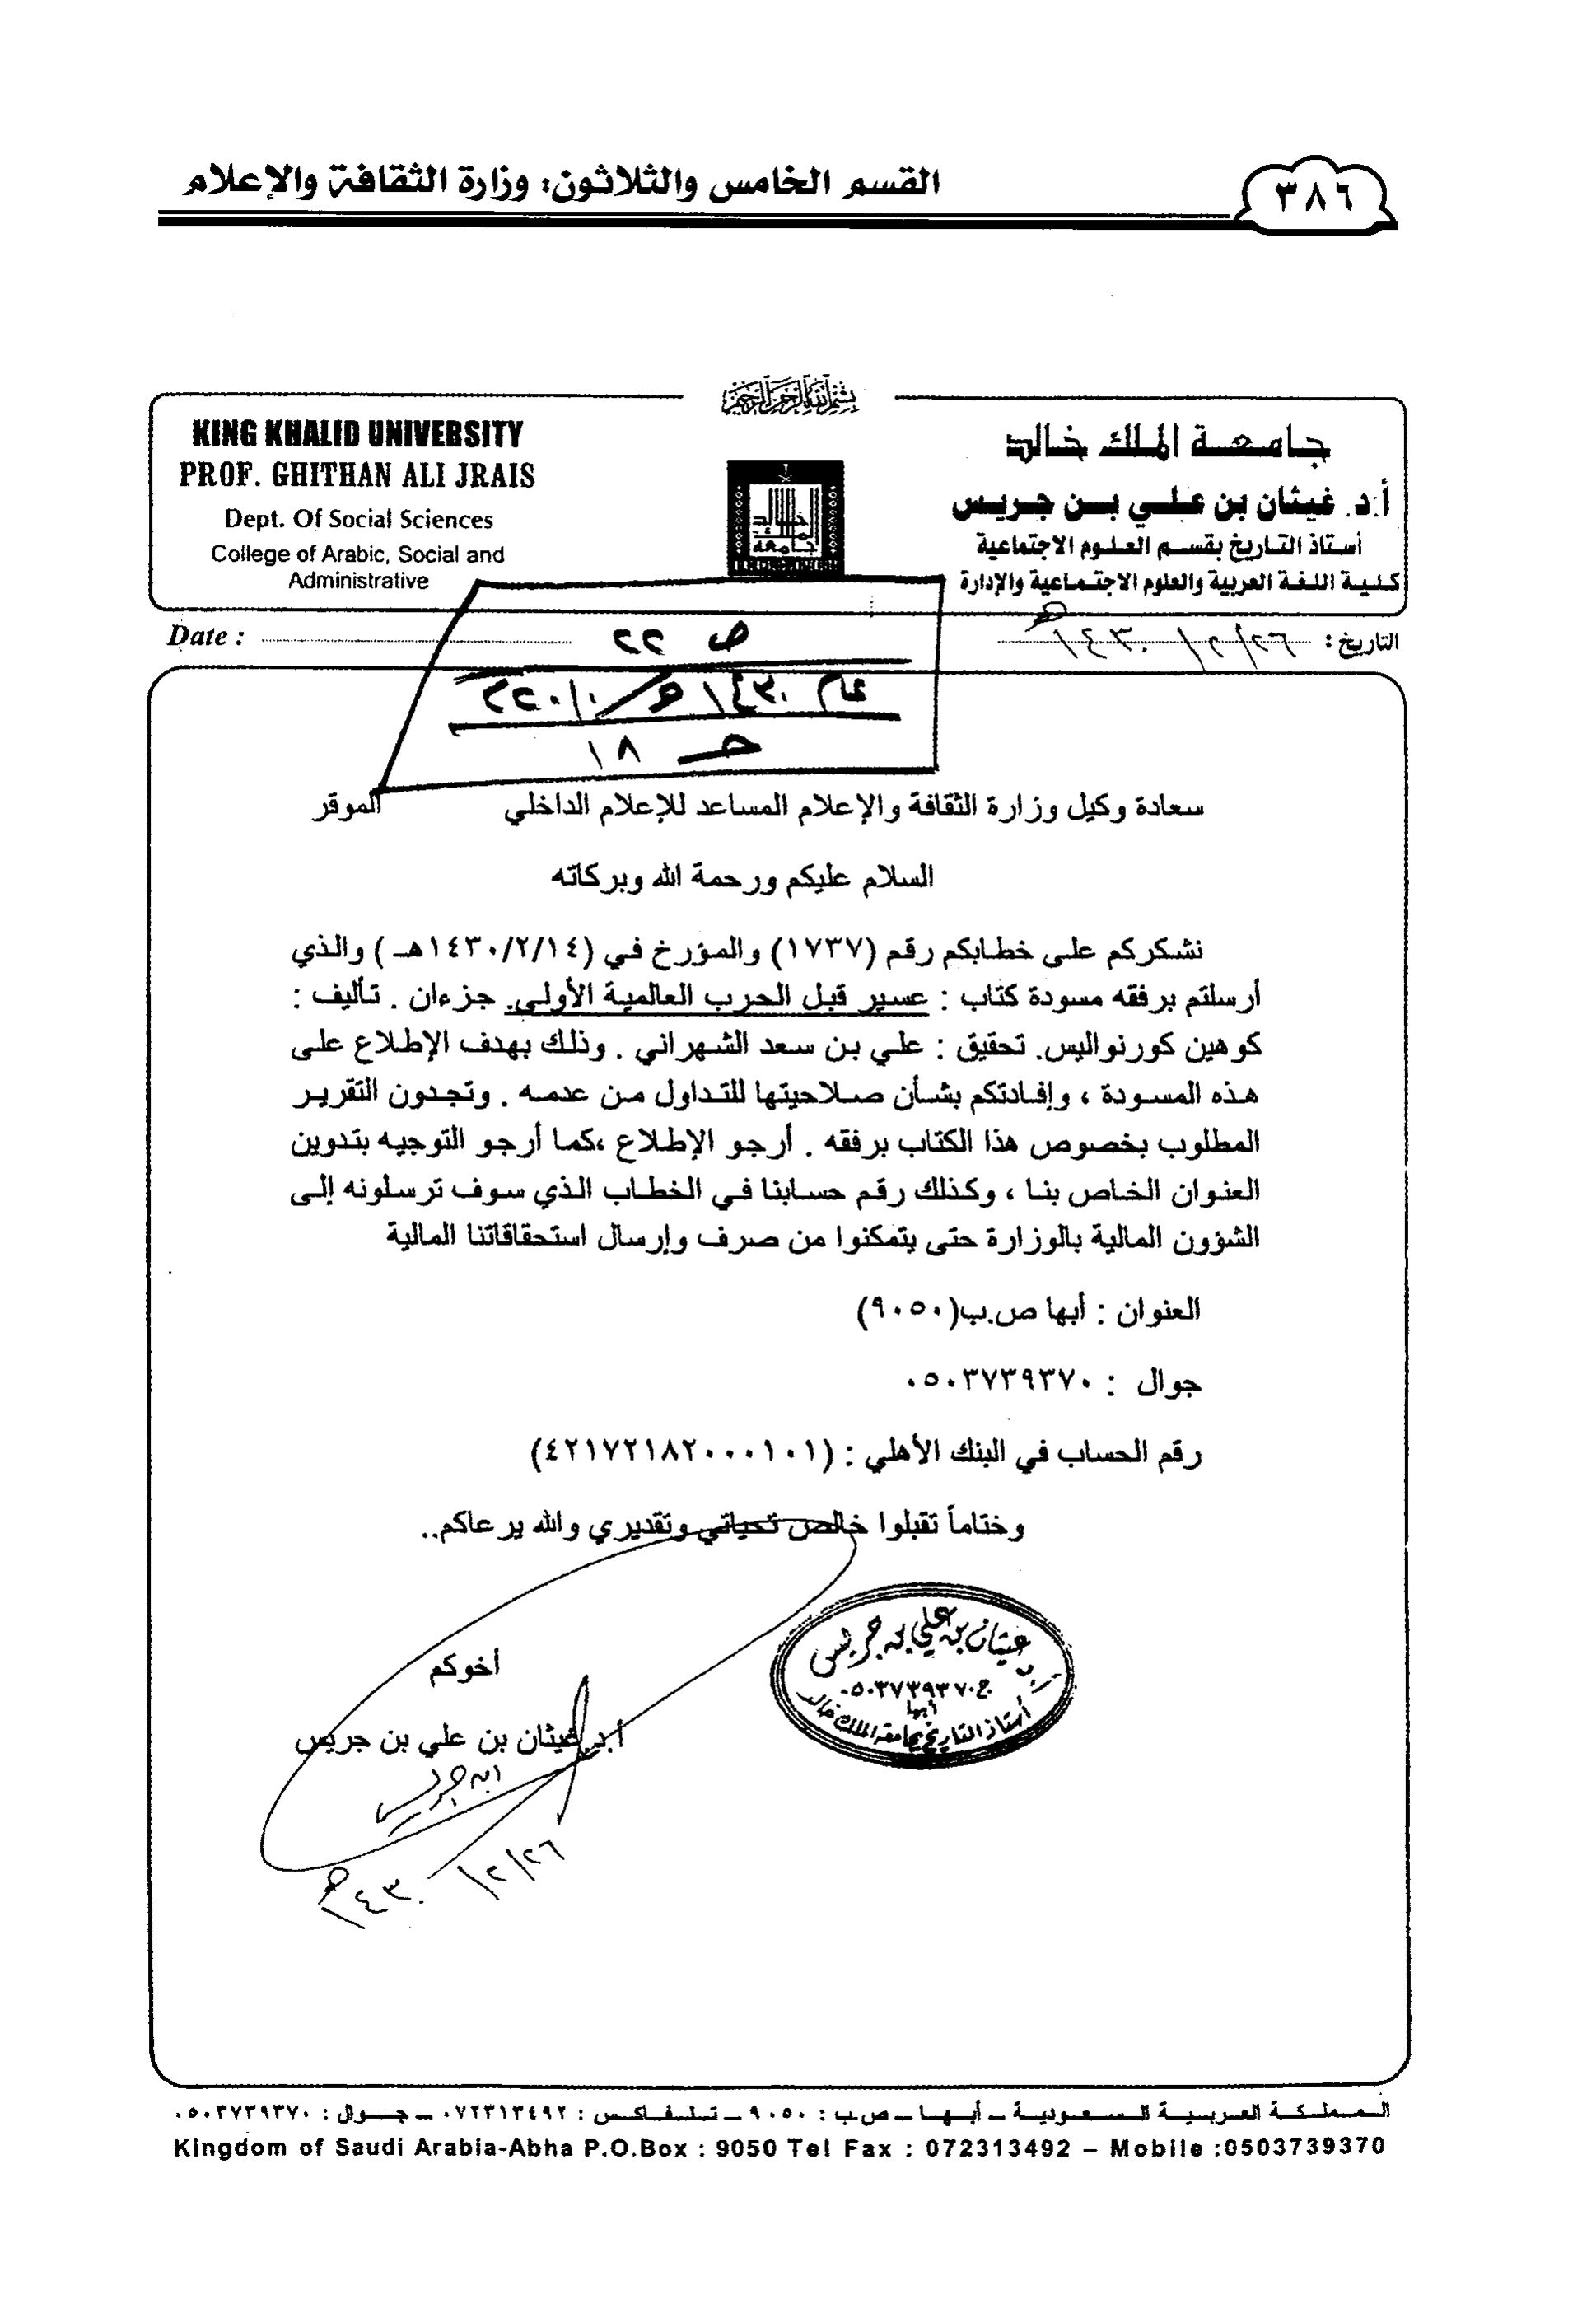 ٣٨٦
القسم الخامس والثلاثون: وزارة الثقافة والإعلام
بسم الله الرحمن الرحيم
KING KHALID UNIVERSITY
PROF. GHITHAN ALI JRAIS
Dept. Of Social Sciences
College of Arabic, Social and
Administrative
جامعة الملك خالد
أ.د. غيثان بن علي بن جريس
أستاذ التاريخ بقسم العلوم الاجتماعية
كلية اللغة العربية والعلوم الاجتماعية والإدارة
جامعة الملك خالد
التاريخ : ٢٦/٢/١٤٣٠هـ
Date :
ص ٢٢
عام ١٤٣٠هـ/
حـ ١٨
سعادة وكيل وزارة الثقافة والإعلام المساعد للإعلام الداخلي الموقر
السلام عليكم ورحمة الله وبركاته
نشكركم على خطابكم رقم (١٧٣٧) والمؤرخ في (١٤٣٠/٢/١٤هـ) والذي
أرسلتم برفقه مسودة كتاب : عسير قبل الحرب العالمية الأولى. جزءان . تأليف :
كوهين كورنواليس. تحقيق : علي بن سعد الشهراني . وذلك بهدف الإطلاع على
هذه المسودة ، وإفادتكم بشأن صلاحيتها للتداول من عدمه . وتجدون التقرير
المطلوب بخصوص هذا الكتاب برفقه . أرجو الإطلاع ،كما أرجو التوجيه بتدوين
العنوان الخاص بنا ، وكذلك رقم حسابنا في الخطاب الذي سوف ترسلونه إلى
الشؤون المالية بالوزارة حتى يتمكنوا من صرف وإرسال استحقاقاتنا المالية
العنوان : أبها ص.ب(٩٠٥٠)
جوال : ٠٥٠٣٧٣٩٣٧٠
رقم الحساب في البنك الأهلي : (٤٢١٧٢١٨٢٠٠٠١٠١)
وختاماً تقبلوا خالص تحياتي وتقديري والله يرعاكم..
أ.د غيثان بن علي بن جريس
ج ٠٥٠٣٧٣٩٣٧٠
أبها
أستاذ التاريخ بجامعة الملك خالد
أخوكم
أ.د.غيثان بن علي بن جريس
ابن جريس
٢٦/٢/١٤٣٠هـ
المملكة العربية السعودية – أبها – ص.ب : ٩٠٥٠ – تلفاكس : ٠٧٢٣١٣٤٩٢ – جوال : ٠٥٠٣٧٣٩٣٧٠
Kingdom of Saudi Arabia-Abha P.O.Box : 9050 Tel Fax : 072313492 – Mobile :0503739370